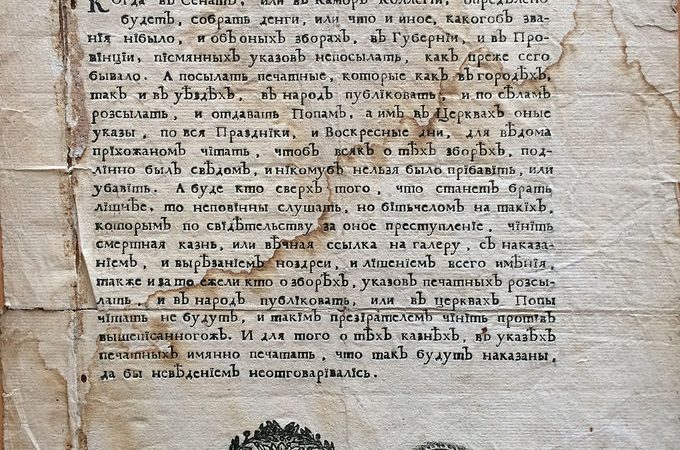 Когда въ Сенатѣ, или въ Каморъ Коллегіи, опредѣлено
будетъ, собрать денги, или что и иное, какогобъ зва-
нія нібыло, и обѣ оныхъ зборахъ, въ Губерніи, и въ Про-
вінціи, пісмянныхъ указовъ непосылать, какъ преже сего
бывало. А посылать печатные, которые какъ въ городѣхъ,
такъ и въ уѣздѣхъ, въ народъ публіковать, и по сѣламъ
розсылать, и отдавать Попамъ, а имъ въ Церквахъ оные
указы, по вся Празднікі, и Воскресные дни, для вѣдома
пріхожаномъ чітать, чтобъ всякъ о тѣхъ зборѣхъ, под-
лінно былъ свѣдомъ, и нікомубъ нельзя было прібавіть, или
убавіть. А буде кто сверхъ того, что станетъ брать
лішнѣе, то неповінны слушать, но бітьчеломъ на такіхъ,
которымъ по свідѣтельству за оное преступленіе, чініть
смертная казнь, или вѣчная ссылка на галеру, съ наказа-
ніемъ, и вырѣзаніемъ ноздреи, и лішеніемъ всего имѣнія,
также и за то ежели кто о зборѣхъ, указовъ печатныхъ розсы-
лать, и въ народъ публіковать, или въ церквахъ Попы
чітать не будутъ, и такімъ презірателемъ чініть протівъ
вышепісанногожъ. И для того о тѣхъ казнѣхъ, въ указѣхъ
печатныхъ имянно печатать, что такъ будутъ наказаны,
да бы невѣденіемъ неотговарівалісь.